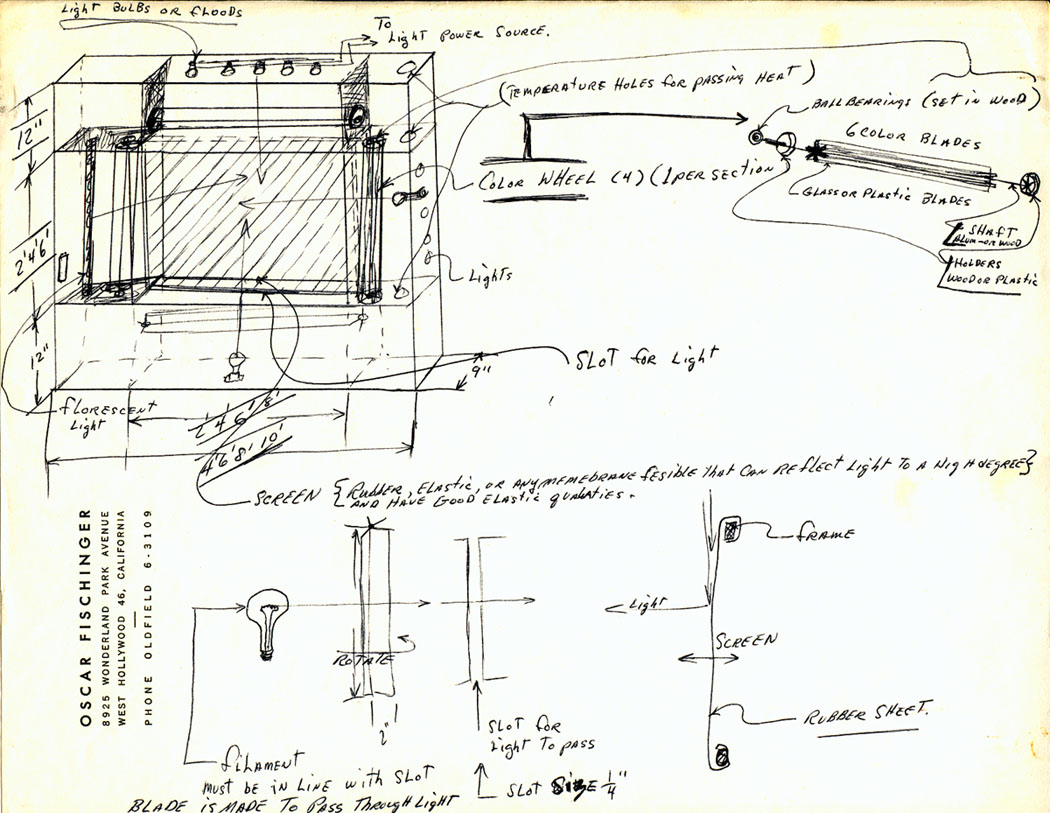 Light BULBS OR FLOODS
To
Light POWER SOURCE.
(TEMPERATURE HOLES FOR PASSING HEAT)
BALL BEARINGS (SET IN WOOD)
6 COLOR BLADES
COLOR WHEEL (4) (1 PER SECTION
GLASS OR PLASTIC BLADES
SHAFT
ALUM-OR WOOD
HOLDERS
WOOD OR PLASTIC
12"
2'4'6'
12"
Lights
SLOT for Light
9"
florescent
Light
2' 4' 6' 8'
4' 6' 8' 10'
SCREEN { RUBBER, ELASTIC, OR ANY MEMEBRANE FESIBLE THAT CAN REFLECT LIGHT TO A HIGH DEGREE }
AND HAVE GOOD ELASTIC QUALATIES.
OSCAR FISCHINGER
8925 WONDERLAND PARK AVENUE
WEST HOLLYWOOD 46, CALIFORNIA
PHONE OLDFIELD 6-3109
FRAME
Light
SCREEN
ROTATE
RUBBER SHEET.
2"
SLOT for
Light To pass
SLOT SIZE 1/4"
filAMENT
MUST BE IN LINE WITH SLOT
BLADE IS MADE TO PASS THROUGH LIGHT